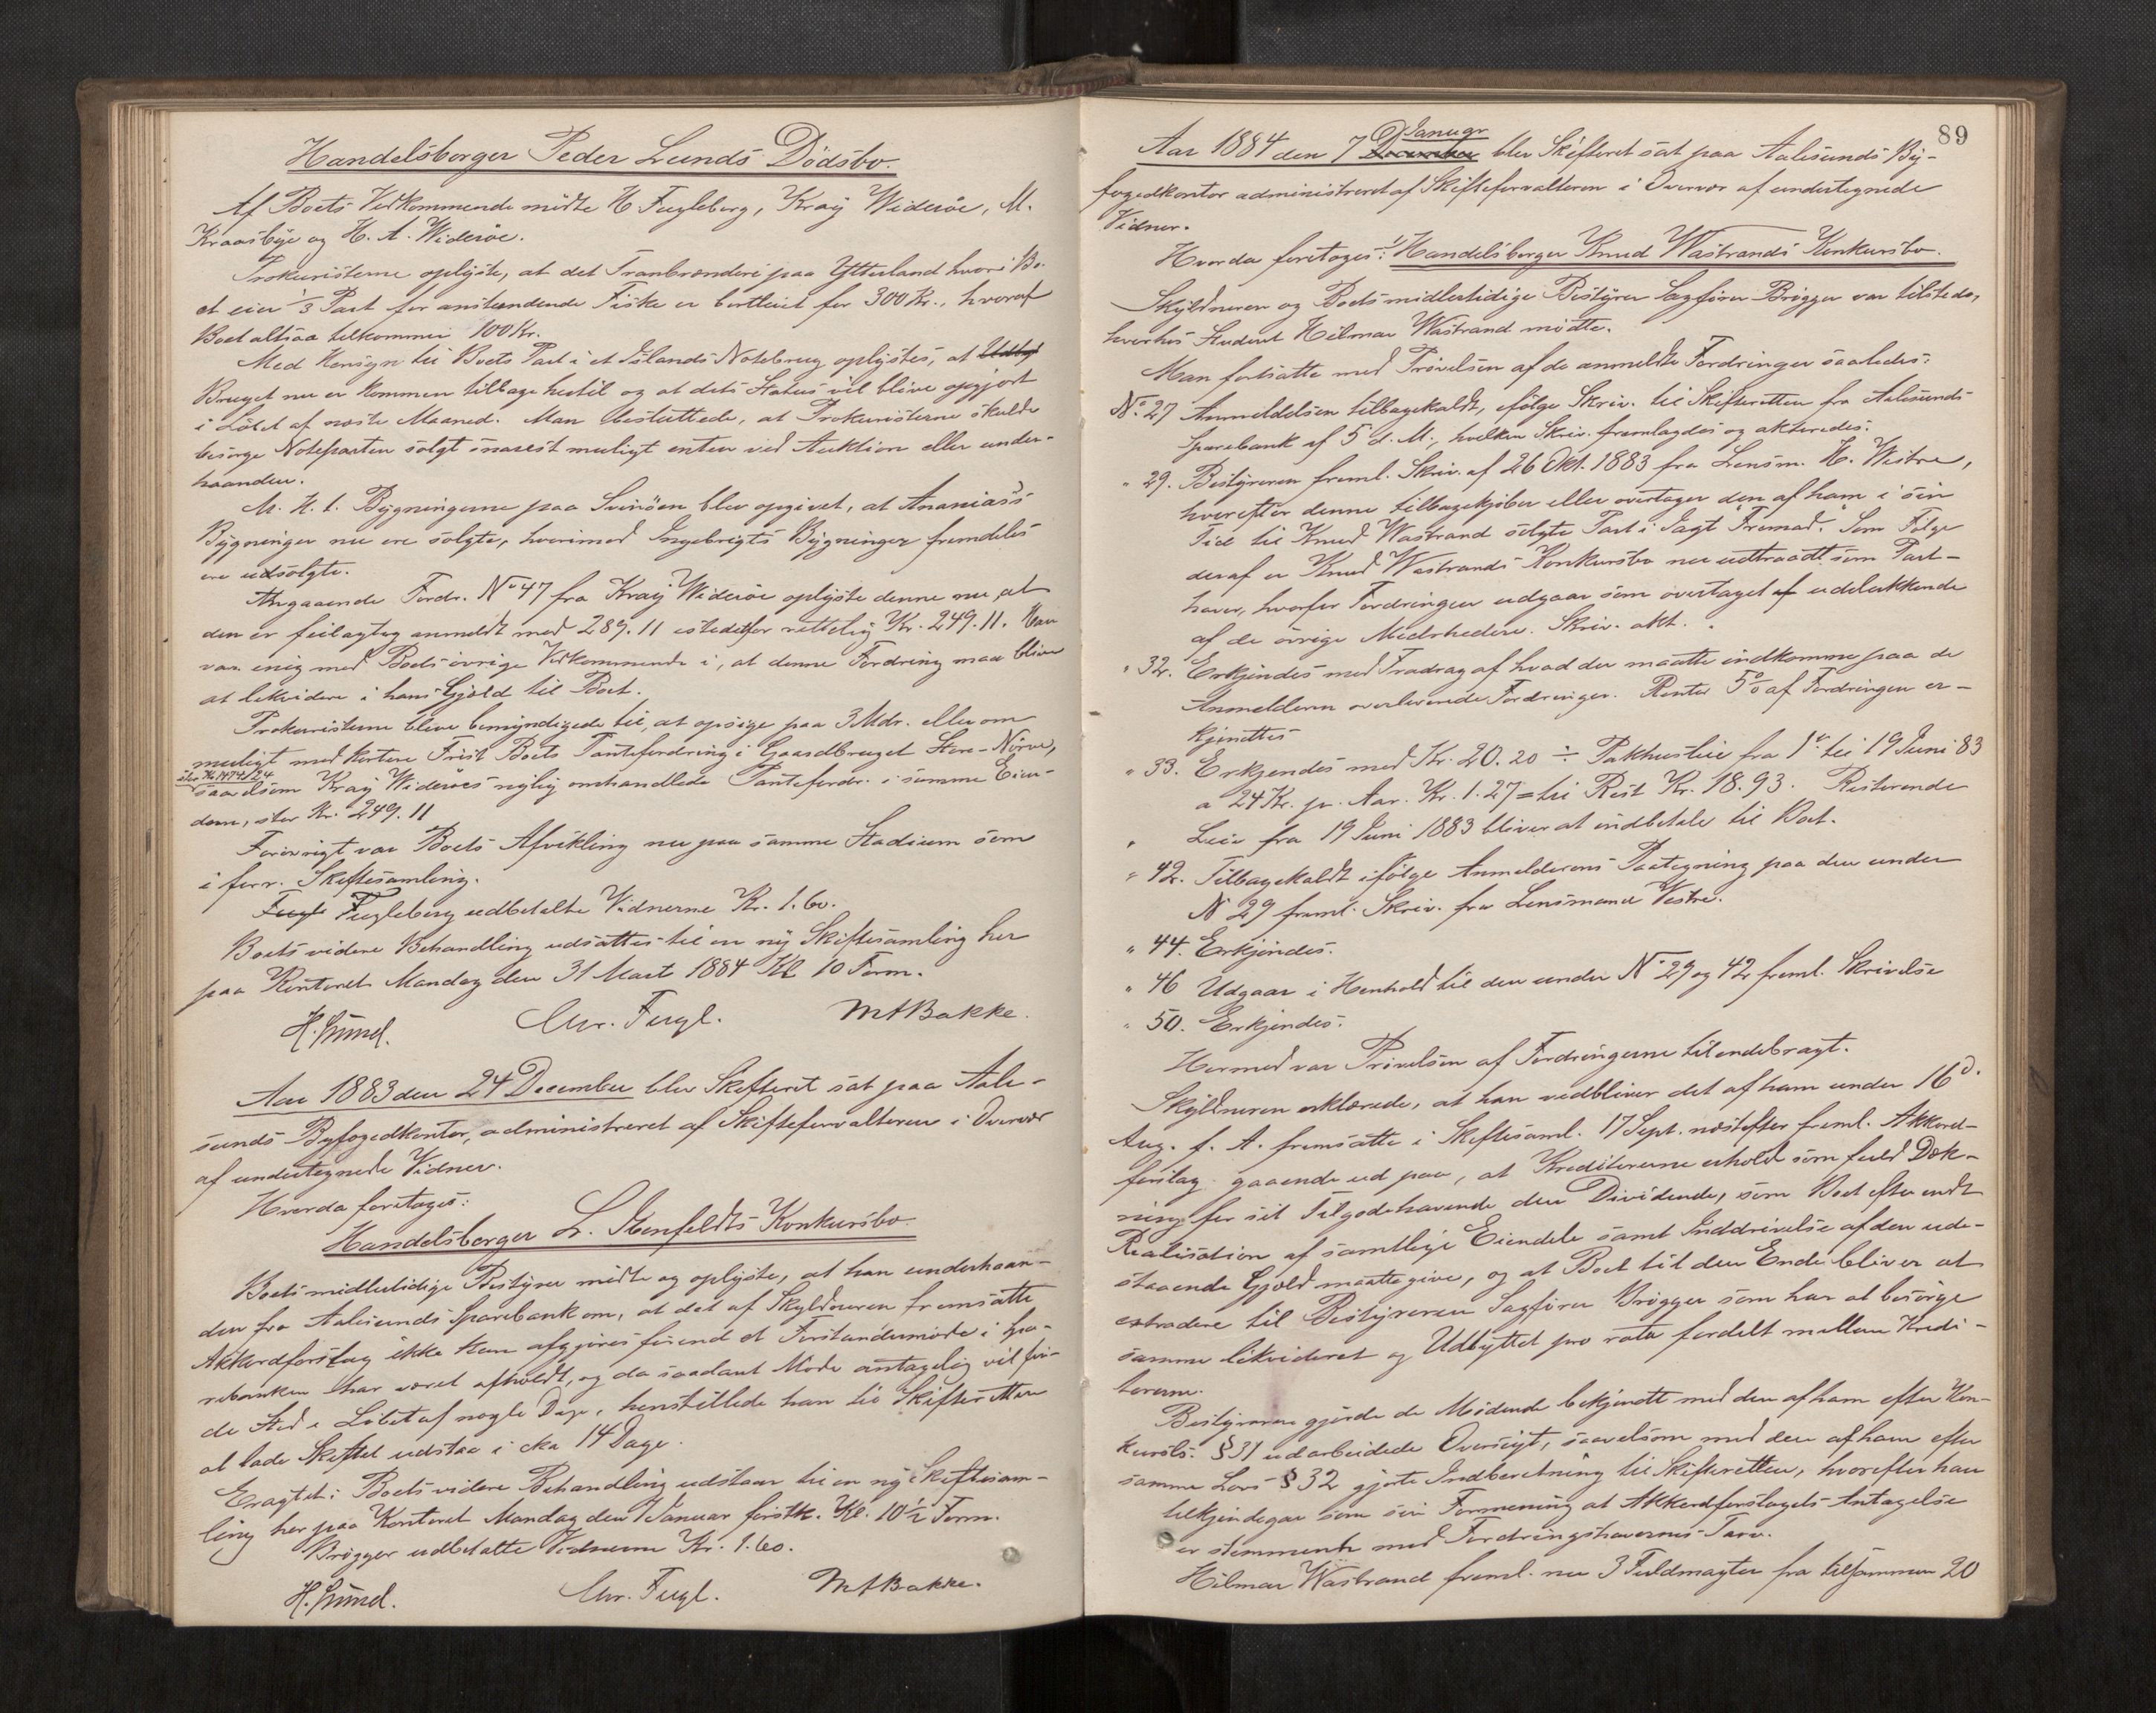 Handelsborger Peder Lunds Dödsbo.
Af Boets Vedkommende mödte H. Fugleberg, Kraÿ Wideröe, M.
Kraasbye og H. A. Wideröe.
Prokuristerne oplyste, at det Tranbrænderi paa Ytterland hvori Bo-
et eier 1/3 Part for anstundende Fiske er bortleiet for 300 Kr., hvoraf
Boet altsaa tilkommer 100 Kr.
Med Hensyn til Boets Part i et Islands Notebrug oplystes, at Udbyt
Bruget nu er kommen tilbage hertil og at dets Status vil blive opgjort
i Löbet af næste Maaned. Man besluttede, at Prokuristerne skulde
besörge Noteparten solgt snarest muligt enten ved Auktion eller under-
haanden.
M. H. t. Bygningerne paa Svinöen blev opgivet, at Ananias's
Bygninger nu ere solgte, hvorimod Ingebrigts Bygninger fremdeles
ere usolgte.
Angaaende Fordr. No 47 fra Kraÿ Wideröe oplyste denne nu at
den er feilagtig anmeldt med 289.11 istedetfor rettelig Kr. 249.11. Han
var enig med Boets övrige Vedkommende i, at denne Fordring maa blive
at likvidere i hans Gjæld til Boet.
Prokuristerne bleve bemyndigede til, at opsige paa 3 Mdr. eller om
muligt med kortere Frist Boets Pantefordring i Gaardbruget Store-Nörve,
stor Kr 1474/24
saavelsom Kraÿ Wideröes nylig omhandlede Pantefordr. i samme Eien-
dom, stor Kr. 249.11
Forövrigt var Boets Afvikling nu paa samme Stadium som
i forr. Skiftesamling.
Fugle Fugleberg udbetalte Vidnerne Kr. 1.60.
Boets videre Behandling udsattes til en ny Skiftesamling her
paa Kontoret Mandag den 31 Marts 1884 Kl 10 Form.
Chr. Fugl. MABakke.
Aar 1883 den 24 December blev Skifteret sat paa Aale-
sunds Byfogedkontor, administreret af Skifteforvalteren i Overvær
af undertegnede Vidner.
Hvorda foretoges:
Handelsborger L. Stenfeldts Konkursbo.
Boets midlertidige Bestyrer mödte og oplyste, at han underhaan-
den fra Aalesunds Sparebank om, at det af Skyldneren fremsatte
Akkordforslag ikke kan afgjöres förend et Forstandermöde i Spa-
rebanken har været afholdt, og da saadant Möde antagelig vil fin-
de Sted i Löbet af nogle Dage, henstillede han til Skifteretten
at lade Skiftet udstaa i cka 14 Dage.
Eragtet: Boets videre Behandling udstaar til en ny Skiftesam-
ling her paa Kontoret Mandag den 7 Januar förstk. Kl. 10 1/2 Form.
Brögger udbetalte Vidnerne Kr. 1.60.
Chr. Fugl. MABakke.
89
Januar
Aar 1884 den 7 December blev Skifteret sat paa Aalesunds By-
fogedkontor administreret af Skifteforvalteren i Overvær af undertegnede
Vidner.
Hvorda foretoges: 1/ Handelsborger Knud Wastrands Konkursbo.
Skyldneren og Boets midlertidige Bestyrer Sagförer Brögger var tilstede,
hvorhos Student Hilmar Wastrand mödte.
Man fortsatte med Prövelsen af de anmeldte Fordringer saaledes:
No. 27 Anmeldelsen tilbagekaldt, ifölge Skriv. til Skifteretten fra Aalesunds
Sparebank af 5 d. M., hvilken Skriv. fremlagdes og akteredes.
" 29. Bestyreren freml. Skriv. af 26 Okt. 1883 fra Lensm. H. Westre,
hvorefter denne tilbagekjöber eller overtager den af ham i sin
Tid til Knud Wastrand solgte Part i Jagt "Fremad." Som Fölge
deraf er Knud Wastrands Konkursbo nu udtraadt som Part-
haver, hvorfor Fordringen udgaar som overtaget af udelukkende
af de övrige Medrhedere. Skriv. akt.
" 32. Erkjendes med Fradrag af hvad der maatte indkomme paa de
Anmelderen overleverede Fordringer. Renter 5% af Fordringen er-
kjendtes
" 33. Erkjendes med Kr. 20.20 ÷ Pakhusleie fra 1ste til 19 Juni 83
a 24 Kr. pr. Aar. Kr. 1.27 = til Rest Kr. 18.93. Resterende
" Leie fra 19 Juni 1883 bliver at indbetale til Boet.
" 42. Tilbagekaldt ifölge Anmelderens Paategning paa den under
N 29 freml. Skriv. fra Lensmand Vestre.
" 44. Erkjendes.
" 46 Udgaar i Henhold til den under No 29 og 42 freml. Skrivelse
" 50. Erkjendes.
Hermed var Prövelsen af Fordringerne tilendebragt.
Skyldneren erklærede, at han vedbliver det af ham under 16d.
Aug. f. A. fremsatte i Skiftesaml. 17 Sept. næstefter freml. Akkord-
forslag gaaende ud paa, at Kreditorerne erhold som fuld Dæk-
ning for sit Tilgodehavende den Dividende, som Boet efter endt
Realisation af samtlige Eiendele samt Inddrivelse af den ude-
staaende Gjæld maatte give, og at Boet til den Ende bliver at
extradere til Bestyreren Sagförer Brögger som har at besörge
samme likvideret og Udbyttet pro rata fordelt mellem Kredi-
torerne.
Bestyreren gjorde de Mödende bekjendt med den af ham efter Kon-
kursls. § 31 udarbeidede Oversigt, saavelsom med den af ham efter
samme Lovs § 32 gjorte Indberetning til Skifteretten, hvorefter han
tilkjendegav som sin Formening at Akkordforslagets Antagelse
er stemmende med Fordringshavernes Tarv.
Hilmar Wastrand freml. nu 3 Fuldmagter fra tilsammen 20